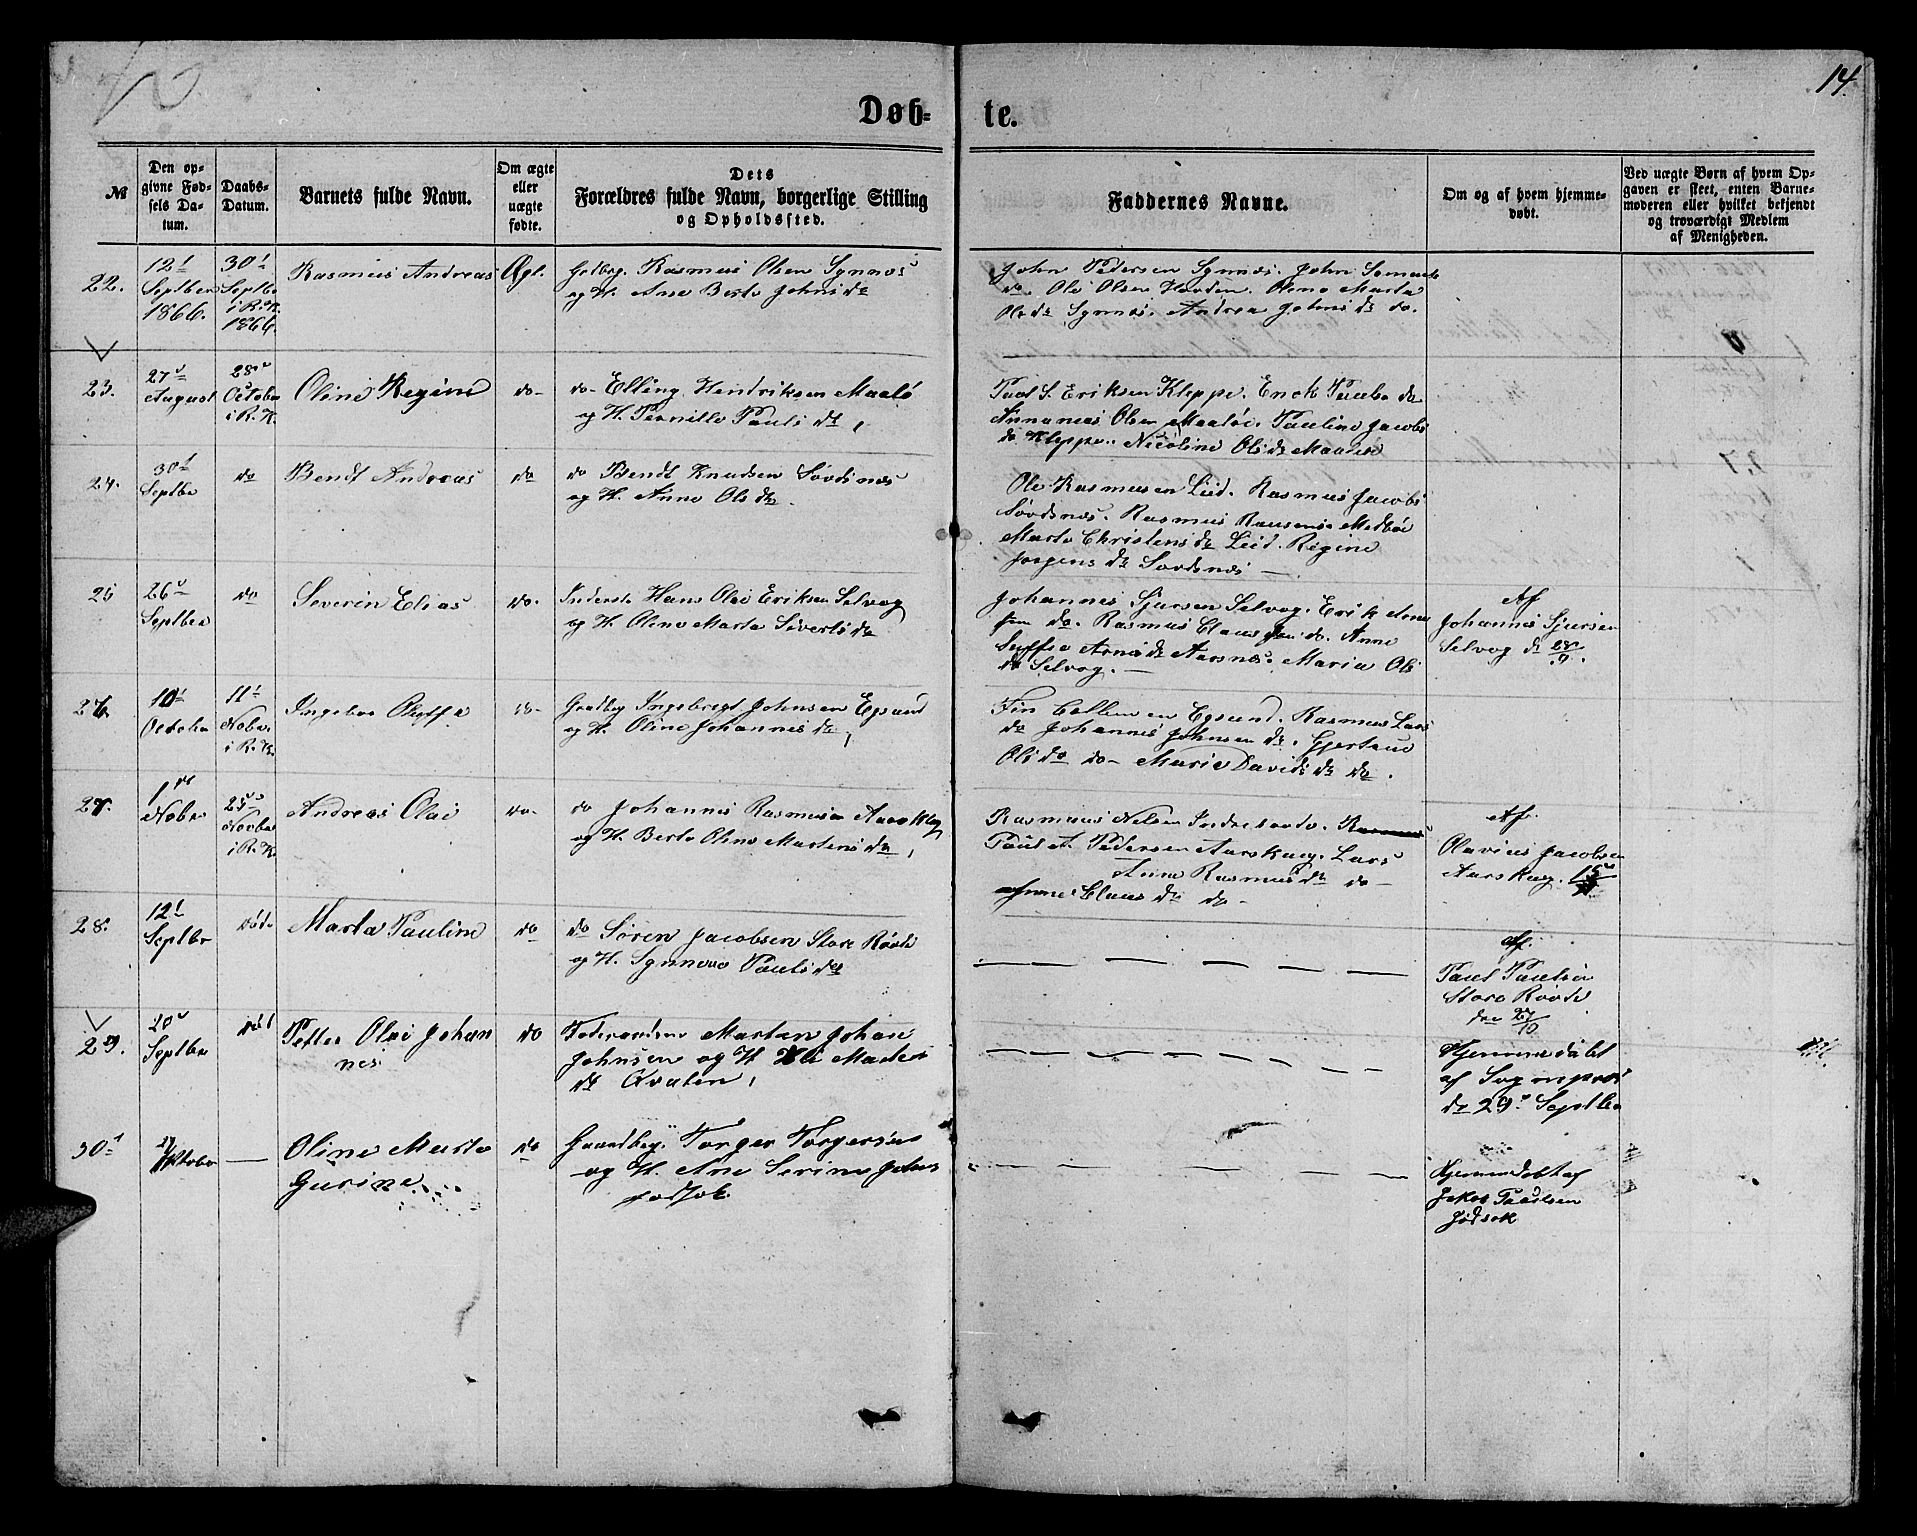 14.
Døb=
te.
№
Den op=
givne Fød=
sels Da=
tum.
Daabs=
Datum.
Barnets fulde Navn.
Om ægte
eller
uægte
fødte.
Dets
Forældres fulde Navn, borgerlige Stilling
og Opholdssted.
Faddernes Navne.
Om og af hvem hjemme=
døbt.
Ved uægte Børn af hvem Op=
gaven er skeet, enten Barne=
moderen eller hvilket bekjendt
og troværdigt Medlem
af Menigheden.
22.
12t
Septber
1866.
30t
Septbr
i R. K.
1866.
Rasmus Andreas
Ægt.
Rasmus Olsen Synnes
og H. Ane Berte Johns da
John Pedersen Synnes. John
do. Ole Olsen Havden. Oline Marta
Ols da Synnes. Andrea Johns da do.
23.
27u
August
28u
October
i R. K.
Oline Regine
do-
do- Elling Hendriksen Maalø
og H. Pernille Pauls da
Paul S. Eriksen Kleppe. Enok Paulse do
Annanias Olsen Maaløe. Pauline Jacobs
da Kleppe. Nicoline Ols da
24.
30t
Septbr
do
Bendt Andreas
do
do Bendt Knudsen Søvdsnæs
og H. Anne Ols da.
Ole Rasmusen Lied. Rasmus Jacobs
Søvdsnes. Rasmus
Marte Christens da Lied. Regine
Jørgens da Søvdsnes
25
26u
Septber
do
Severin Elias
do.
Inderst Hans Olai Eriksen Selvog
og H. Oline Marta Siverts da
Johannes Sjursen Selvog. Erik Arne
sen do. Rasmus Clausen do. Anne
Arnes da Aarsnes. Maria Ols
da Selvog.
Af
Johannes Sjursen
Selvog d 28/9.
26.
10t
October
11t
Nober
i R. K.
do-
Gaardbr Ingebrigt Johnsen Egsund
og H. Oline Johannes da
Egsund. Rasmus Lars
do Johannes Johnsen do.
Ols da do- Marie Davids da do.
27.
1ste
Nober
25u
Novber
i R. K.
Andreas Olai
do.
do Johannes Rasmusen
og H. Berte Oline Martens da
Rasmus Nilsen
Paul A. Pedersen Aarskaug. Lars
Anne Rasmus da do-
Anne Claus da do-
Af.
Olavius Jacobsen
Aarskaug. 15
28.
12t
Septbr
død
Marta Pauline
do
do Søren Jacobsen Store Røvde
og H. Synnøve Pauls da
af.
Paul Paulsen
Store Røvde
den 27/10
29.
20u
Septbr
død
Petter Olai Johan
nes.
do
Føderaadsm Martin Johan
Johnsen og H.
da Qvalen,
Hjemmedøbt
af Sogneprest
da 29de Septbr
30t
October
Oline Marte
Gurine
do
Gaardbr. Torger Torgersen
og H. Ane Serine Johns
Jødsok
Hjemmedøbt af
Jakob Paulsen
Jødsok